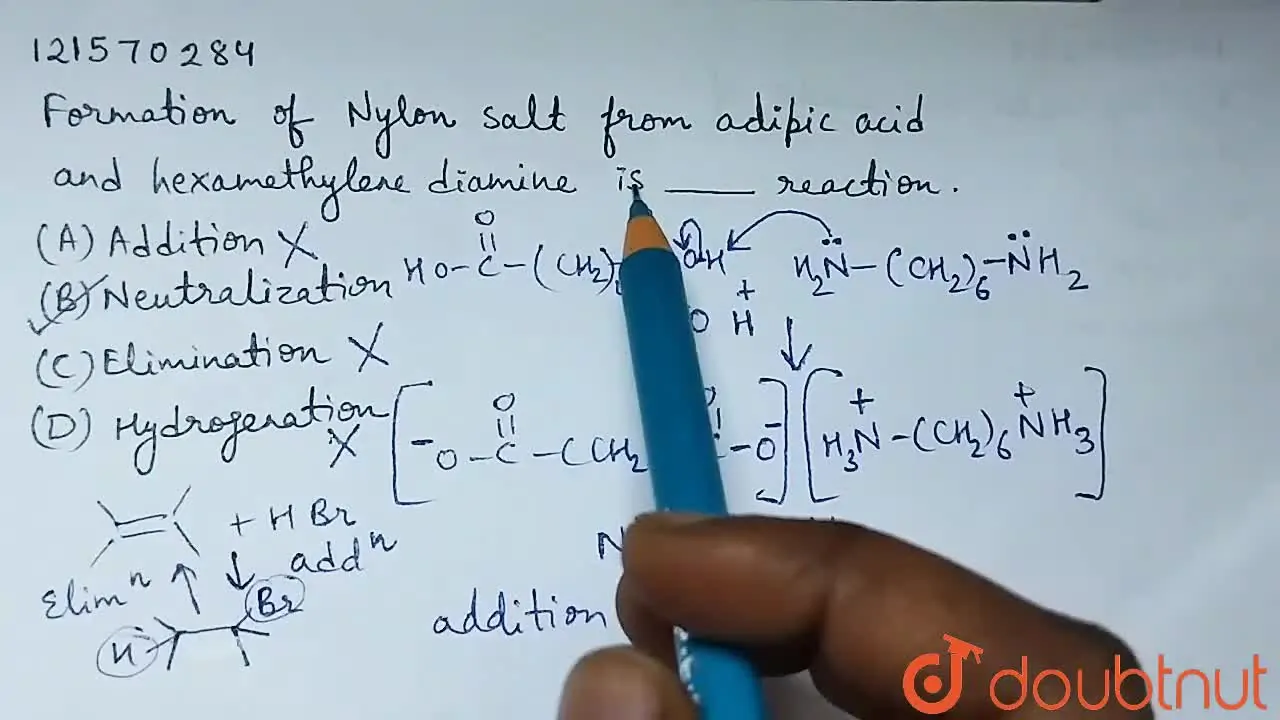 121570284
Formation of Nylon salt from adipic acid
and hexamethylene diamine is ___ reaction.
(A) Addition X
(B) Neutralization
(C) Elimination X
(D) Hydrogenation X
O
HO-C-(CH2) OH + H2N-(CH2)6-NH2
O H
O
[-O-C-(CH2 C-O-] [H3N+-(CH2)6 N+H3]
+ H Br
addn
Elimn
Br
H
N
addition
doubtnut